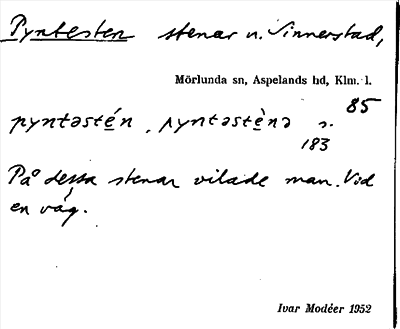 Pyntesten stenar n. Sinnerstad,
Mörlunda sn, Aspelands hd, Klm. l.
85
pyntəstén, pyntəstènə s.
183
På dessa stenar vilade man. Vid
en väg.
Ivar Modéer 1952